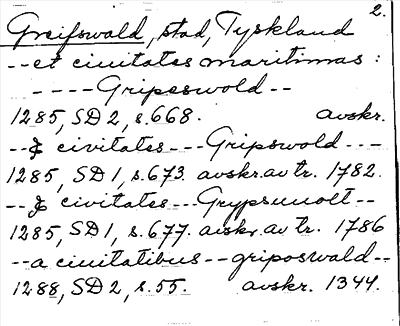 2.
Greifswald, stad, Tyskland
--et ciuitates maritimas:
----Gripeswold--
1285, SD 2, s. 668. avskr.
--& civitates---Gripswold---
1285, SD 1, s. 673. avskr. av tr. 1782.
--& civitates---Grypsuuolt--
1285, SD 1, s. 677. avskr. av tr. 1786
--a ciuitatibus--griposwald--
1288, SD 2, s. 55. avskr. 1344.